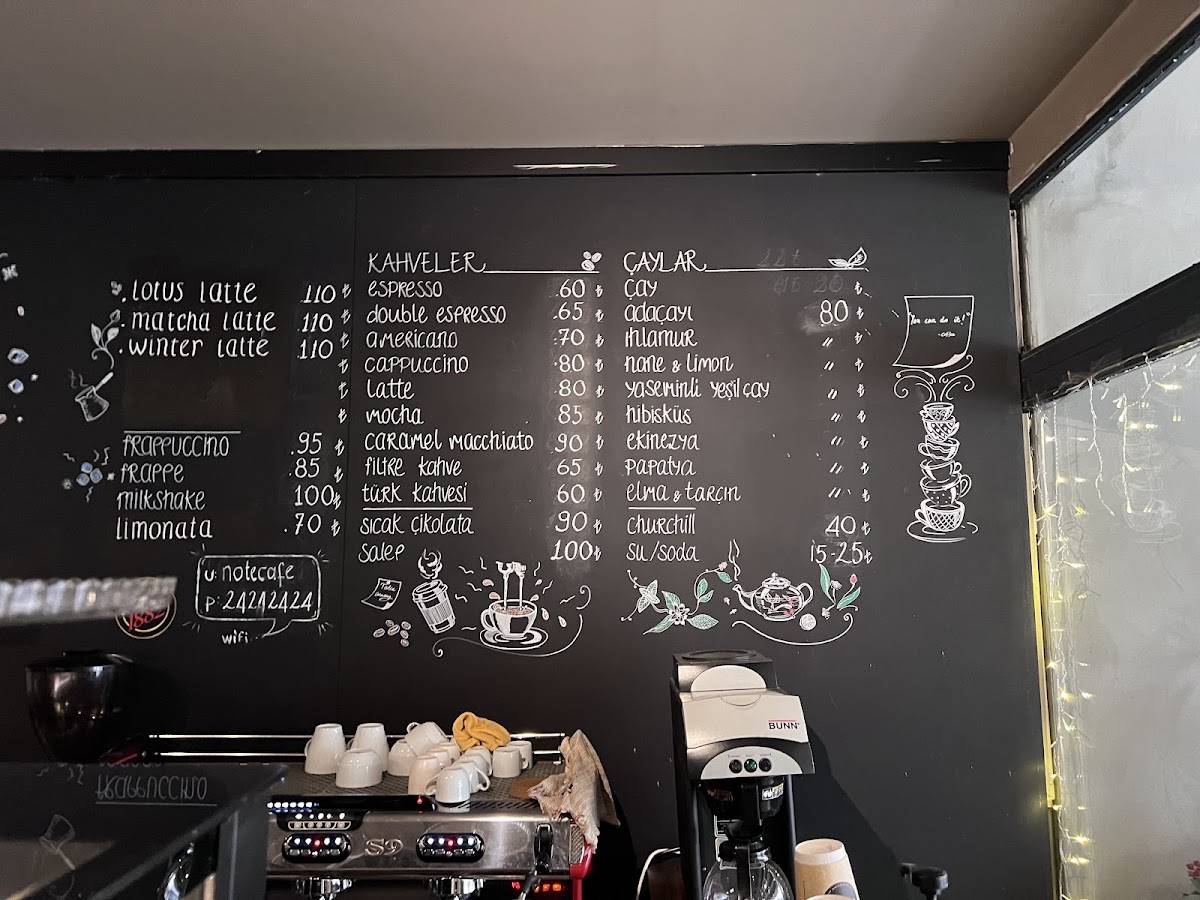 .lotus latte .110 ₺
.matcha latte .110 ₺
.winter latte .110 ₺
₺
₺
frappuccino .95 ₺
frappe .85 ₺
milkshake 100₺
limonata .70 ₺
u: notecafe
p: 24242424
wifi
1882
KAHVELER
espresso .60 ₺
double espresso .65 ₺
americano .70 ₺
cappuccino .80 ₺
latte 80 ₺
mocha 85 ₺
caramel macchiato 90 ₺
filtre kahve 65 ₺
türk kahvesi 60 ₺
sıcak çikolata 90 ₺
salep 100₺
ÇAYLAR
çay ₺
adaçayı 80 ₺
ıhlamur " ₺
nane & limon " ₺
yaseminli yeşil çay " ₺
hibisküs " ₺
ekinezya " ₺
papatya " ₺
elma & tarçın " ₺
churchill 40 ₺
su/soda 15-25₺
"You can do it!"
-coffee
BUNN
S9